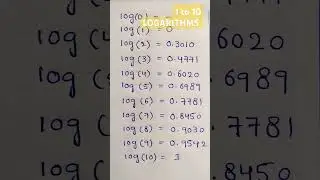 1 to 10
LOGARITHMS
log(0) =
log(1) = 0
log(2) = 0.3010
log(3) = 0.4771
log(4) = 0.6020
log(5) = 0.6989
log(6) = 0.7781
log(7) = 0.8450
log(8) = 0.9030
log(9) = 0.9542
log(10) = 1
6020
6989
.7781
8450